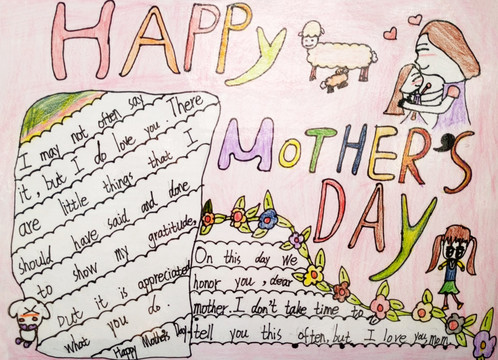 HAPPY
MOTHER'S
DAY
I may not often say
it, but I do love you. There
are little things that I
should have said and done
to show my gratitude,
but it is appreciated
what you do.
Happy Mother's Day
On this day we
honor you, dear
mother. I don't take time to
tell you this often, but I love you, mom.